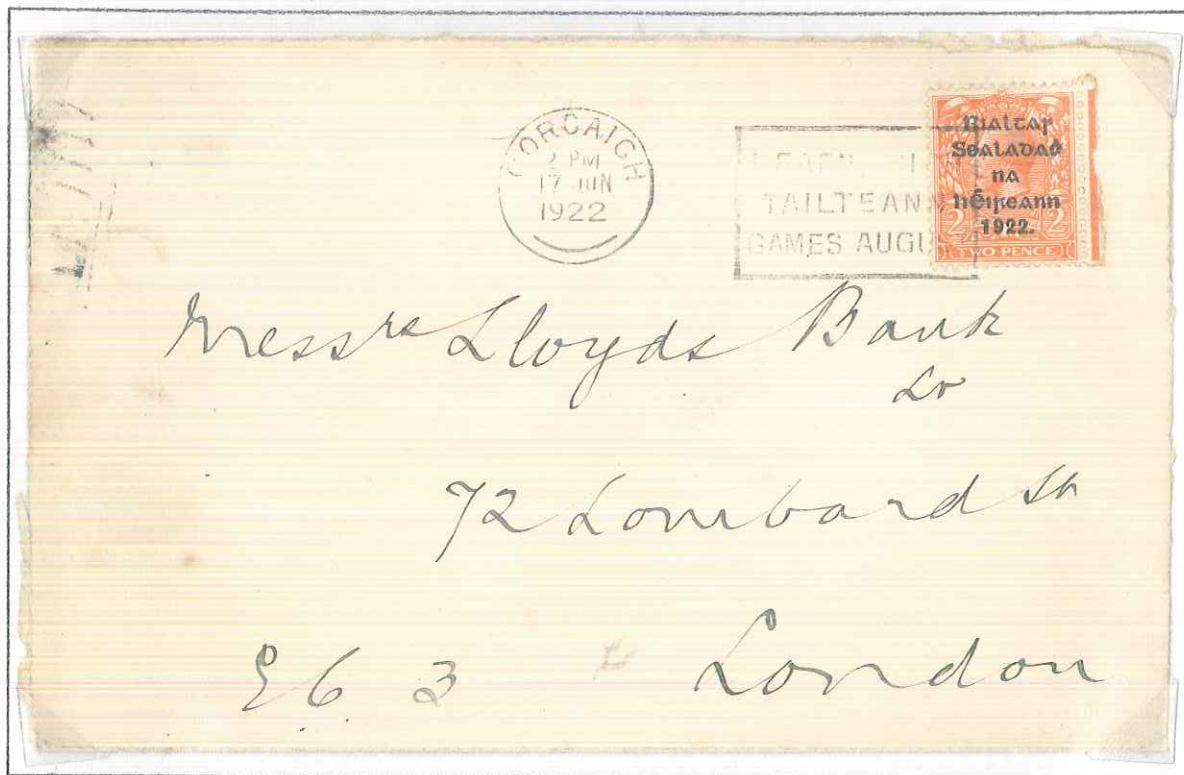 CORCAIGH
2 PM
17 JUN
1922
TAILTEANN
GAMES AUGU
Rialtas
Sealadaċ
na
hÉireann
1922.
2 2
TWO PENCE
Messrs Lloyds Bank
Ld
72 Lombard St
EC 3 London